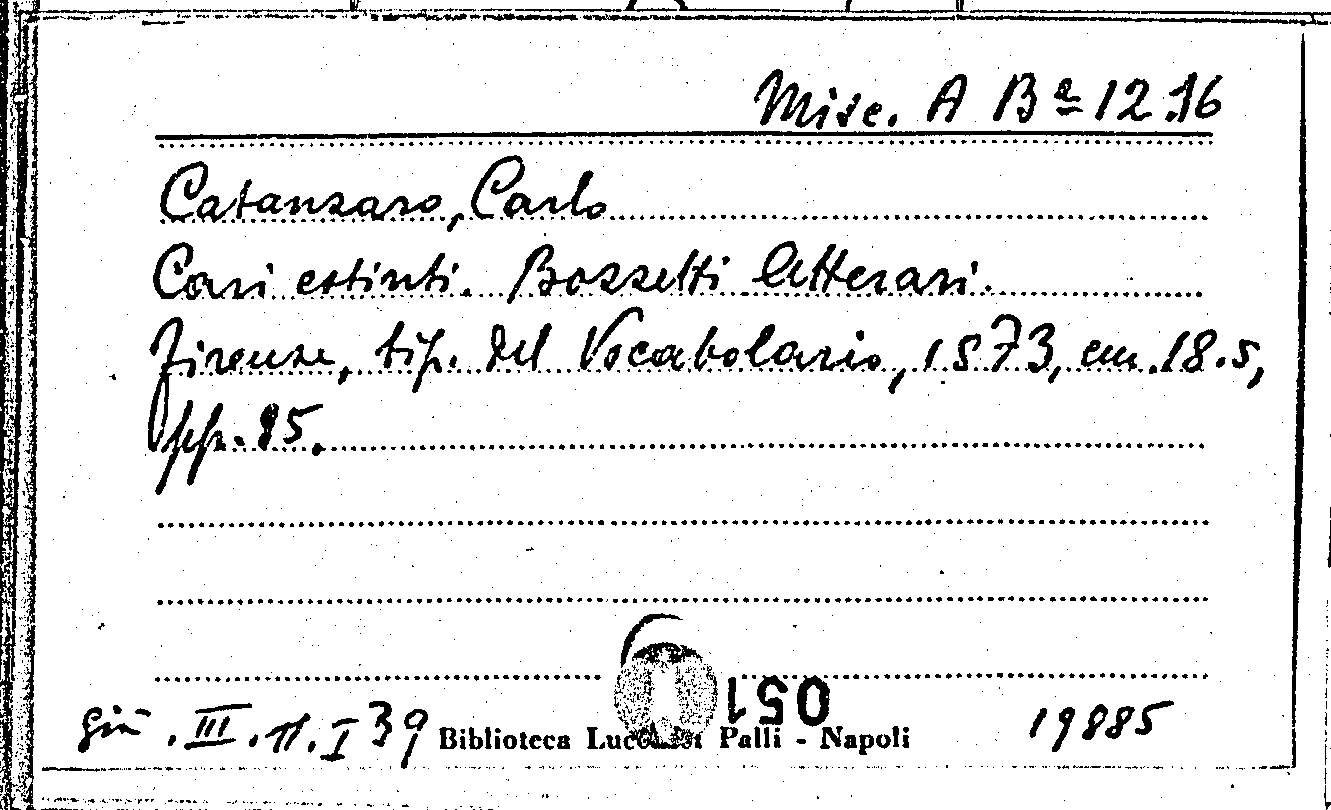 Misc. A Bª 12.16
Catanzaro, Carlo
Cari estinti. Bozzetti letterari.
Firenze, tip. del Vocabolario, 1873, cm. 18.5,
pp. 95.
051
già . III. 11. I 39 Biblioteca Lucchesi Palli - Napoli 19885